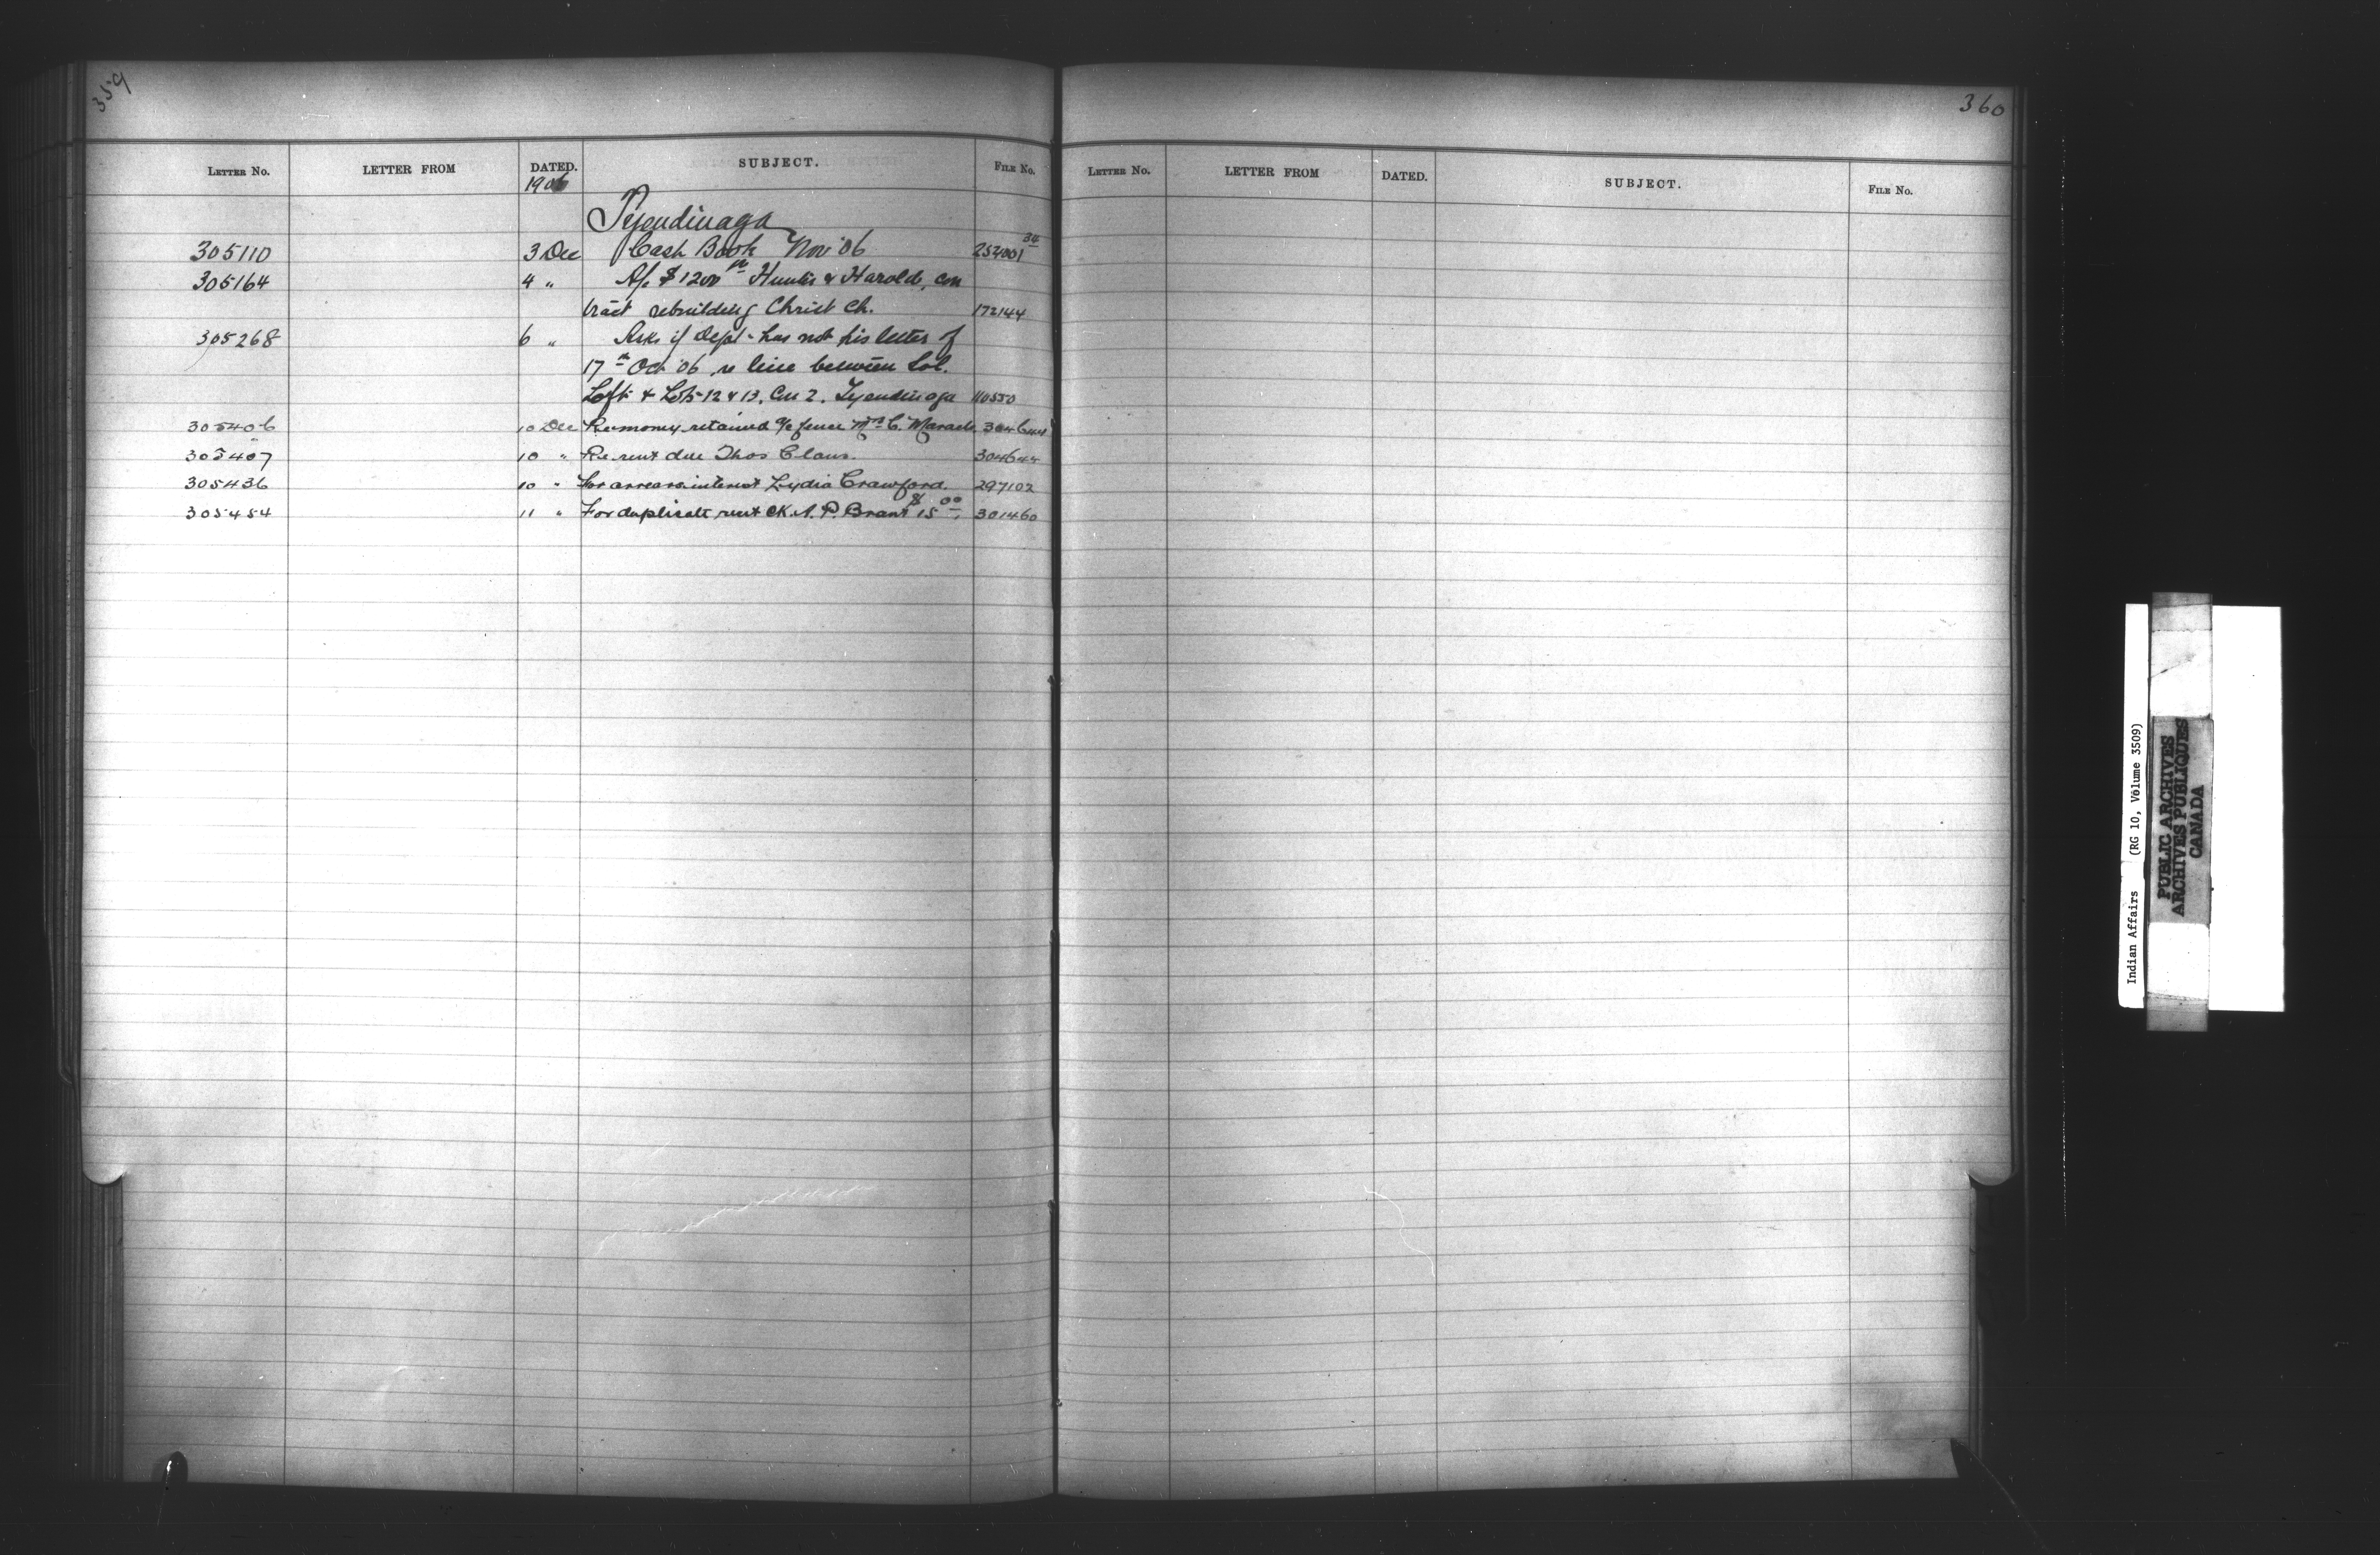 359
LETTER NO. LETTER FROM DATED. SUBJECT. FILE NO.
1906
Tyendinaga
305110 3 Dec Cash Book Nov '06 254001 34
305164 4 " A/c $1200 Hunter & Harold, con
tract rebuilding Christ Ch. 172144
305268 6 " Asks if Dept has not his letter of
17th Oct '06, re line between Sol.
Loft & Lots 12 & 13, Con 2, Tyendinaga 110550
305406 10 Dec Re money retained a/c fence Mrs C. Maracle 304644
305407 10 " Re rent due Thos Claus. 304644
305436 10 " For arrears interest Lydia Crawford. 297102
305454 11 " For duplicate rent CK. A. P. Brant $15 00, 301460
360
LETTER NO. LETTER FROM DATED. SUBJECT. FILE NO.
Indian Affairs (RG 10, Volume 3509)
PUBLIC ARCHIVES
ARCHIVES PUBLIQUES
CANADA